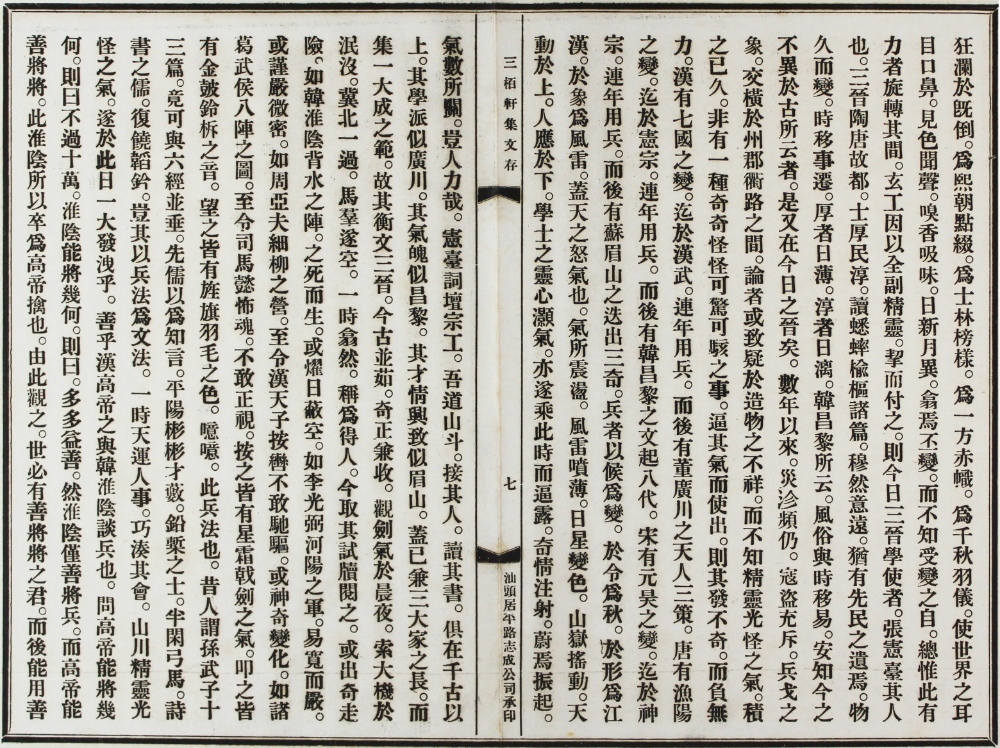 狂瀾於旣倒。爲熙朝點綴。爲士林榜樣。爲一方赤幟。爲千秋羽儀。使世界之耳
目口鼻。見色聞聲。嗅香吸味。日新月異。翕焉丕變。而不知受變之自。總惟此有
力者旋轉其間。玄工因以全副精靈。挈而付之。則今日三晉學使者。張憲臺其人
也。三晉陶唐故都。士厚民淳。讀蟋蟀楡樞諸篇。穆然意遠。猶有先民之遺焉。物
久而變。時移事遷。厚者日薄。淳者日漓。韓昌黎所云。風俗與時移易。安知今之
不異於古所云者。是又在今日之晉矣。數年以來。災沴頻仍。寇盜充斥。兵戈之
象。交橫於州郡衢路之間。論者或致疑於造物之不祥。而不知精靈光怪之氣。積
之已久。非有一種奇奇怪怪可驚可駭之事。逼其氣而使出。則其發不奇。而負無
力。漢有七國之變。迄於漢武。連年用兵。而後有董廣川之天人三策。唐有漁陽
之變。迄於憲宗。連年用兵。而後有韓昌黎之文起八代。宋有元昊之變。迄於神
宗。連年用兵。而後有蘇眉山之迭出三奇。兵者以候爲變。於令爲秋。於形爲江
漢。於象爲風雷。蓋天之怒氣也。氣所震盪。風雷噴薄。日星變色。山嶽搖動。天
動於上。人應於下。學士之靈心灝氣。亦遂乘此時而逼露。奇情注射。蔚焉振起。
三栢軒集文存
七
汕頭居平路志成公司承印
氣數所關。豈人力哉。憲臺詞壇宗工。吾道山斗。接其人。讀其書。俱在千古以
上。其學派似廣川。其氣魄似昌黎。其才情興致似眉山。蓋已兼三大家之長。而
集一大成之範。故其衡文三晉。今古並茹。奇正兼收。觀劍氣於晨夜。索大機於
泯沒。冀北一過。馬羣遂空。一時翕然。稱爲得人。今取其試牘閱之。或出奇走
險。如韓淮陰背水之陣。之死而生。或燿日蔽空。如李光弼河陽之軍。易寬而嚴。
或謹嚴微密。如周亞夫細柳之營。至令漢天子按轡不敢馳驅。或神奇變化。如諸
葛武侯八陣之圖。至令司馬懿怖魂。不敢正視。按之皆有星霜戟劍之氣。叩之皆
有金皷鈴柝之音。望之皆有旌旗羽毛之色。噫噫。此兵法也。昔人謂孫武子十
三篇。竟可與六經並垂。先儒以爲知言。平陽彬彬才藪。鉛槧之士。半閑弓馬。詩
書之儒。復饒韜鈐。豈其以兵法爲文法。一時天運人事。巧湊其會。山川精靈光
怪之氣。遂於此日一大發洩乎。善乎漢高帝之與韓淮陰談兵也。問高帝能將幾
何。則曰不過十萬。淮陰能將幾何。則曰。多多益善。然淮陰僅善將兵。而高帝能
善將將。此淮陰所以卒爲高帝擒也。由此觀之。世必有善將將之君。而後能用善